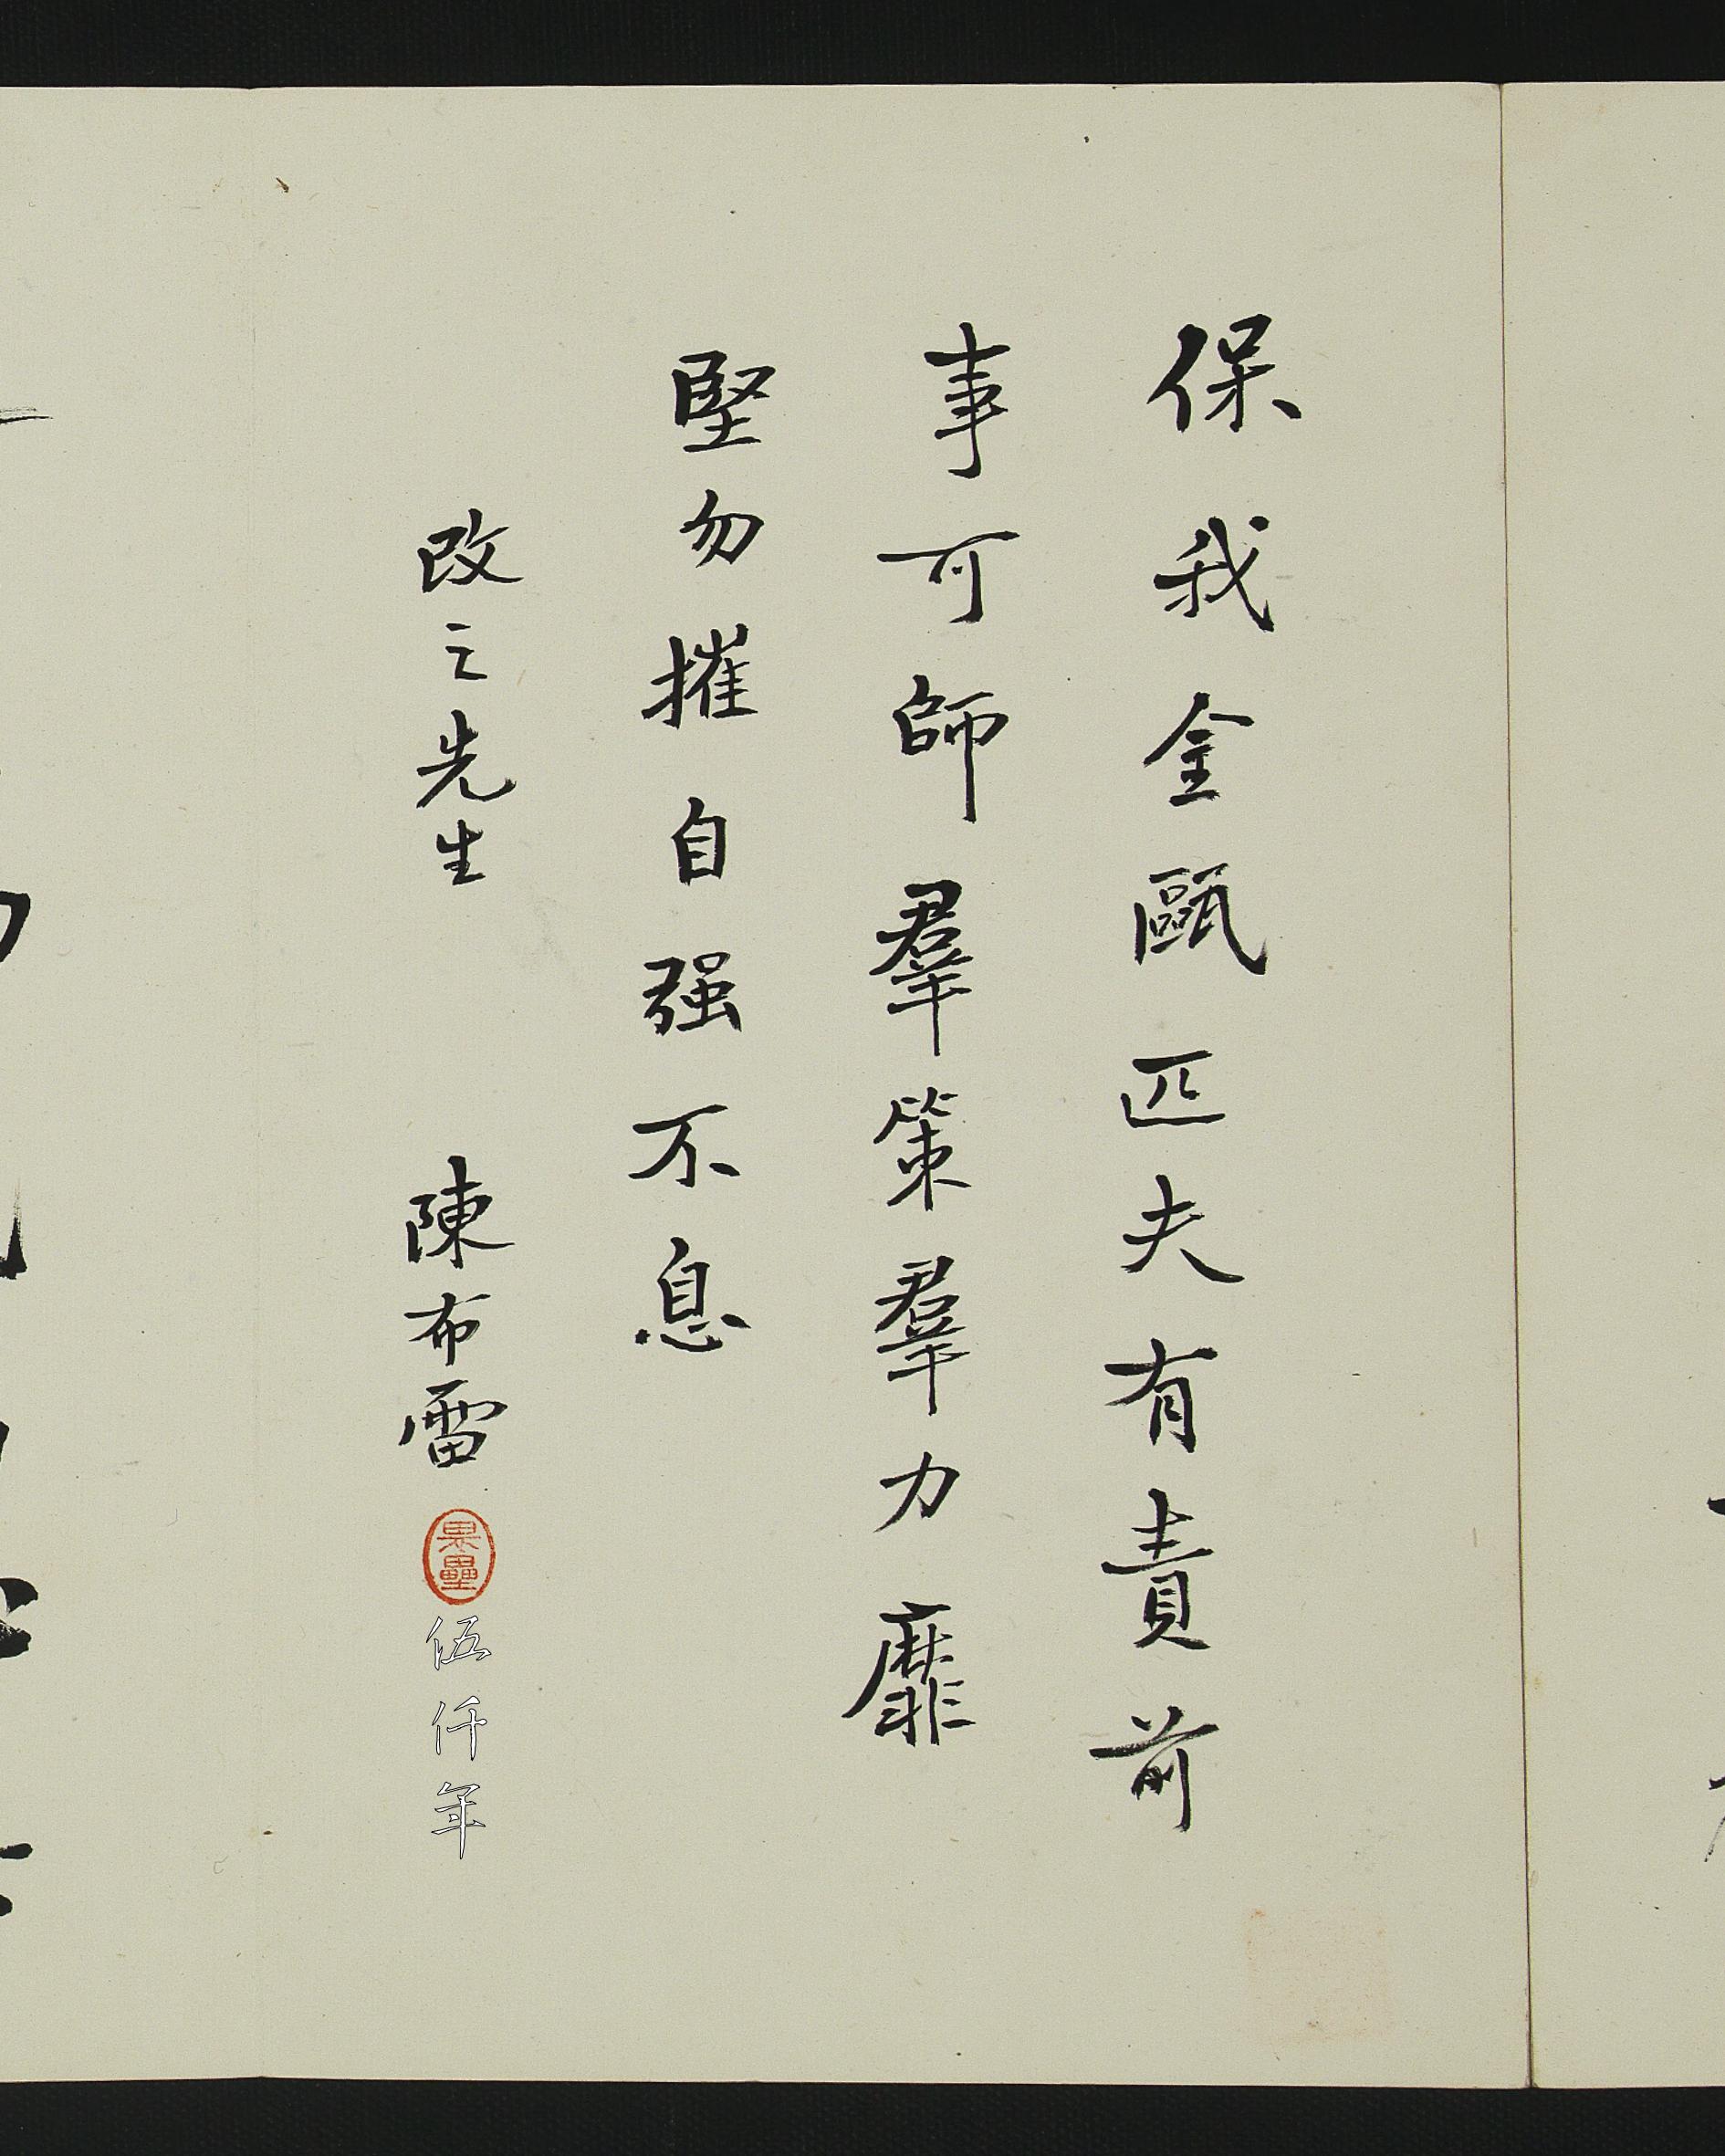 保我金甌匹夫有責前
事可師羣策羣力靡
堅勿摧自强不息
改之先生 陳布雷
畏壘
伍仟年